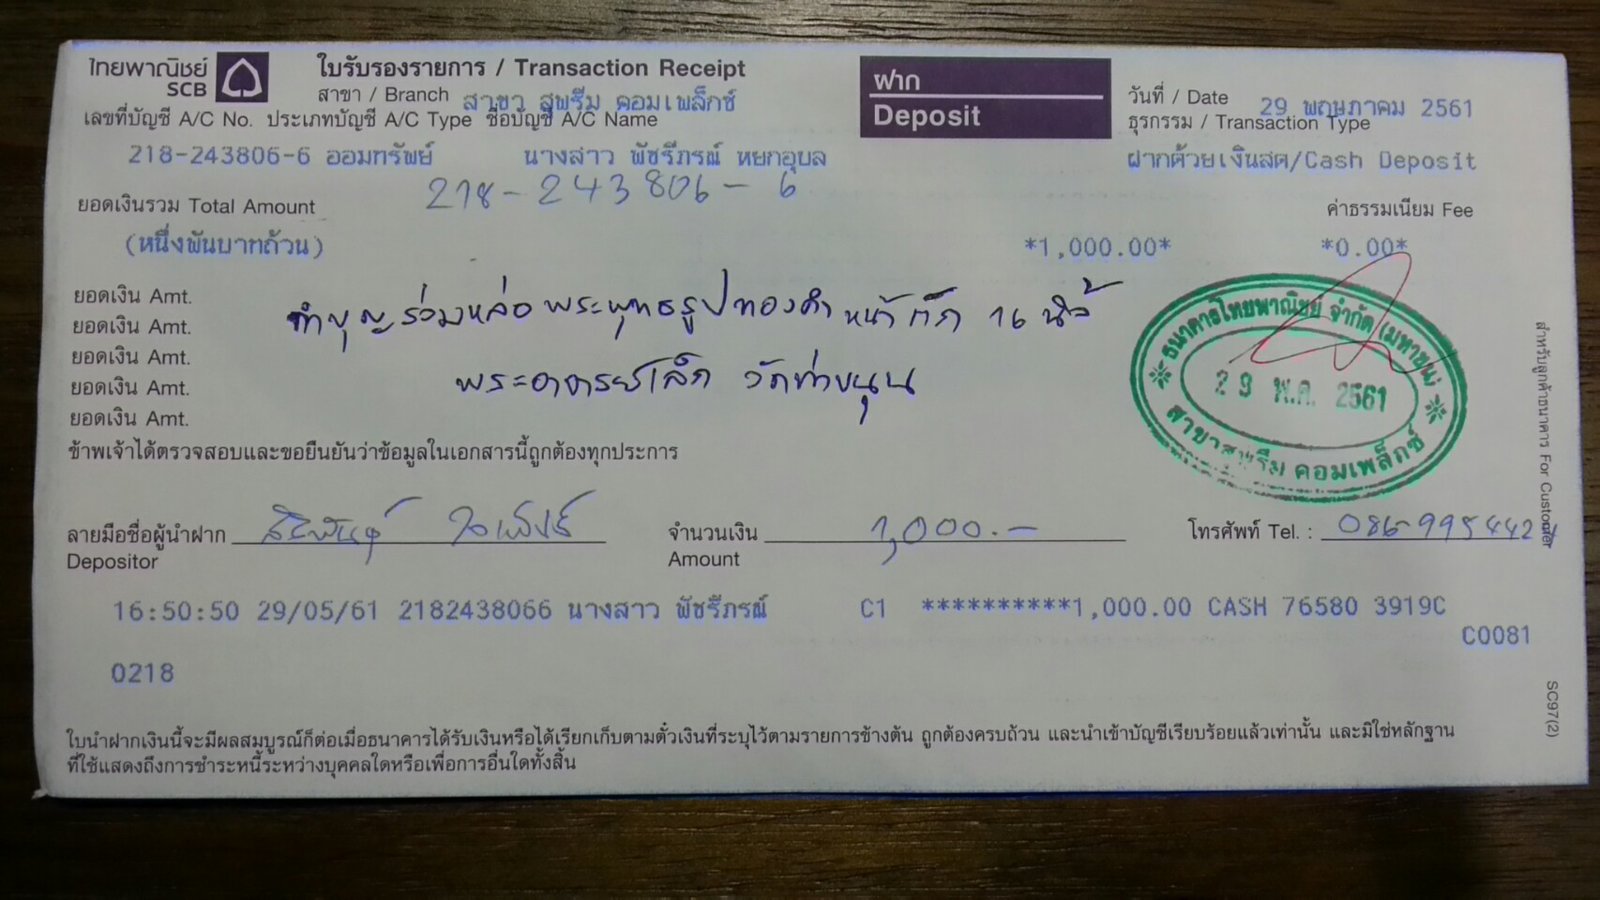 ไทยพาณิชย์ SCB
ใบรับรองรายการ / Transaction Receipt
ฝาก
Deposit
สาขา / Branch สาขา สุพรีม คอมเพล็กซ์
วันที่ / Date 29 พฤษภาคม 2561
เลขที่บัญชี A/C No. ประเภทบัญชี A/C Type ชื่อบัญชี A/C Name
ธุรกรรม / Transaction Type
218-243806-6 ออมทรัพย์ นางสาว พัชรีภรณ์ หยกอุบล
ฝากด้วยเงินสด/Cash Deposit
218-243806-6
ยอดเงินรวม Total Amount
ค่าธรรมเนียม Fee
(หนึ่งพันบาทถ้วน) *1,000.00* *0.00*
ยอดเงิน Amt.
ยอดเงิน Amt.
ยอดเงิน Amt.
ยอดเงิน Amt.
ยอดเงิน Amt.
ทำบุญร่วมหล่อพระพุทธรูปทองคำ หน้าตัก 16 นิ้ว
พระอาจารย์เล็ก วัดท่าขนุน
ธนาคารไทยพาณิชย์ จำกัด (มหาชน)
29 พ.ค. 2561
สาขาสุพรีม คอมเพล็กซ์
ข้าพเจ้าได้ตรวจสอบและขอยืนยันว่าข้อมูลในเอกสารนี้ถูกต้องทุกประการ
ลายมือชื่อผู้นำฝาก
Depositor
จำนวนเงิน 1,000.-
Amount
โทรศัพท์ Tel. :
16:50:50 29/05/61 2182438066 นางสาว พัชรีภรณ์ C1 **********1,000.00 CASH 76580 3919C
C0081
0218
ใบนำฝากเงินนี้จะมีผลสมบูรณ์ก็ต่อเมื่อธนาคารได้รับเงินหรือได้เรียกเก็บตามตั๋วเงินที่ระบุไว้ตามรายการข้างต้น ถูกต้องครบถ้วน และนำเข้าบัญชีเรียบร้อยแล้วเท่านั้น และมิใช่หลักฐาน
ที่ใช้แสดงถึงการชำระหนี้ระหว่างบุคคลใดหรือเพื่อการอื่นใดทั้งสิ้น
สำหรับลูกค้าธนาคาร For Customer
SC97(2)